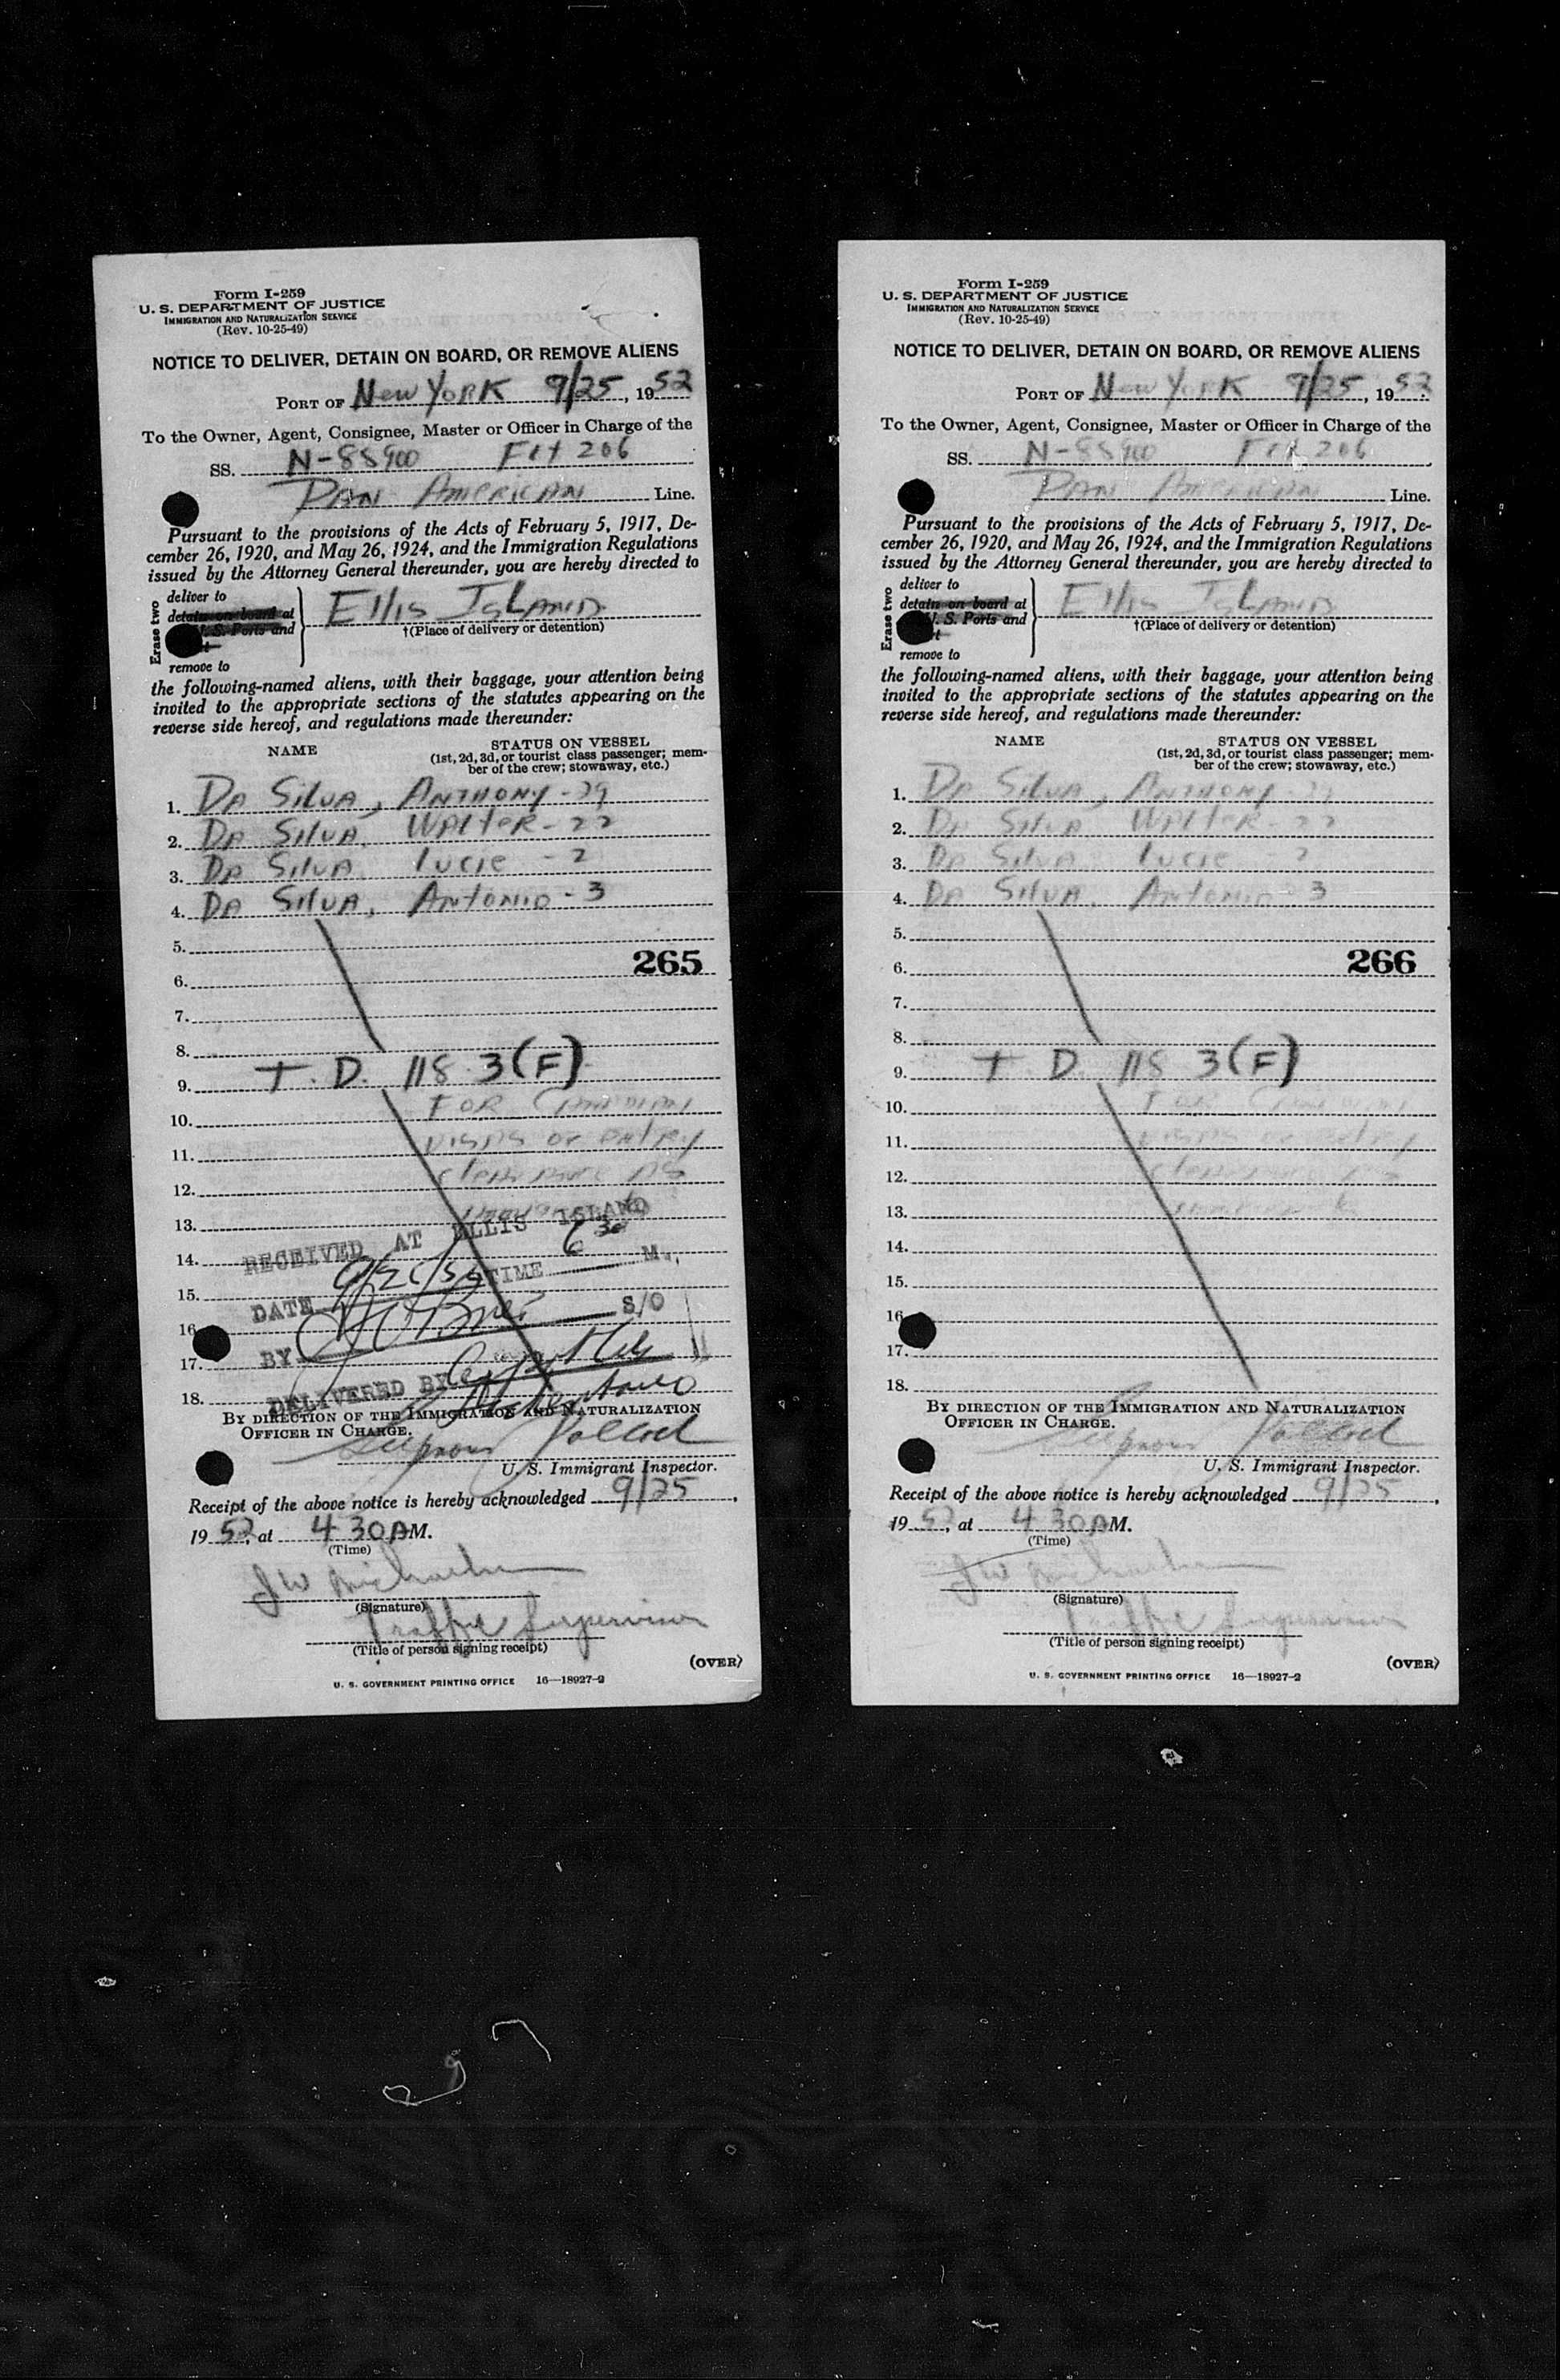 Form I-259
U. S. DEPARTMENT OF JUSTICE
IMMIGRATION AND NATURALIZATION SERVICE
(Rev. 10-25-49)
NOTICE TO DELIVER, DETAIN ON BOARD, OR REMOVE ALIENS
PORT OF New York 9/25, 1952
To the Owner, Agent, Consignee, Master or Officer in Charge of the
SS. N-88900 Flt 206
Pan American Line.
Pursuant to the provisions of the Acts of February 5, 1917, De-
cember 26, 1920, and May 26, 1924, and the Immigration Regulations
issued by the Attorney General thereunder, you are hereby directed to
Erase two
deliver to
detain on board at
U. S. Ports and
remove to
Ellis Island
†(Place of delivery or detention)
the following-named aliens, with their baggage, your attention being
invited to the appropriate sections of the statutes appearing on the
reverse side hereof, and regulations made thereunder:
NAME STATUS ON VESSEL
(1st, 2d, 3d, or tourist class passenger; mem-
ber of the crew; stowaway, etc.)
1. Da Silva, Anthony - 29
2. Da Silva, Walter - 22
3. Da Silva Lucie - 2
4. Da Silva, Antonio - 3
5.
265
6.
7.
8.
9. T. D. 118.3(F)
10. For
11. visas or entry
12.
13.
RECEIVED AT ELLIS ISLAND
14. 6 30
DATE TIME M.
15.
16. S/O
BY
17.
18. DELIVERED BY
BY DIRECTION OF THE IMMIGRATION AND NATURALIZATION
OFFICER IN CHARGE.
U. S. Immigrant Inspector.
Receipt of the above notice is hereby acknowledged 9/25,
1952, at 4 30 AM.
(Time)
(Signature)
Traffic Supervisor
(Title of person signing receipt)
(OVER)
U. S. GOVERNMENT PRINTING OFFICE 16—18927-2
Form I-259
U. S. DEPARTMENT OF JUSTICE
IMMIGRATION AND NATURALIZATION SERVICE
(Rev. 10-25-49)
NOTICE TO DELIVER, DETAIN ON BOARD, OR REMOVE ALIENS
PORT OF New York 9/25, 1952
To the Owner, Agent, Consignee, Master or Officer in Charge of the
SS. N-88900 Flt 206
Pan American Line.
Pursuant to the provisions of the Acts of February 5, 1917, De-
cember 26, 1920, and May 26, 1924, and the Immigration Regulations
issued by the Attorney General thereunder, you are hereby directed to
Erase two
deliver to
detain on board at
U. S. Ports and
remove to
Ellis Island
†(Place of delivery or detention)
the following-named aliens, with their baggage, your attention being
invited to the appropriate sections of the statutes appearing on the
reverse side hereof, and regulations made thereunder:
NAME STATUS ON VESSEL
(1st, 2d, 3d, or tourist class passenger; mem-
ber of the crew; stowaway, etc.)
1. Da Silva, Anthony - 29
2. Da Silva Walter - 22
3. Da Silva Lucie - 2
4. Da Silva, Antonio - 3
5.
266
6.
7.
8.
9. T. D. 118 3(F)
10. For
11. visas or entry
12.
13.
14.
15.
16.
17.
18.
BY DIRECTION OF THE IMMIGRATION AND NATURALIZATION
OFFICER IN CHARGE.
U. S. Immigrant Inspector.
Receipt of the above notice is hereby acknowledged 9/25,
1952, at 4 30 AM.
(Time)
(Signature)
Traffic Supervisor
(Title of person signing receipt)
(OVER)
U. S. GOVERNMENT PRINTING OFFICE 16—18927-2